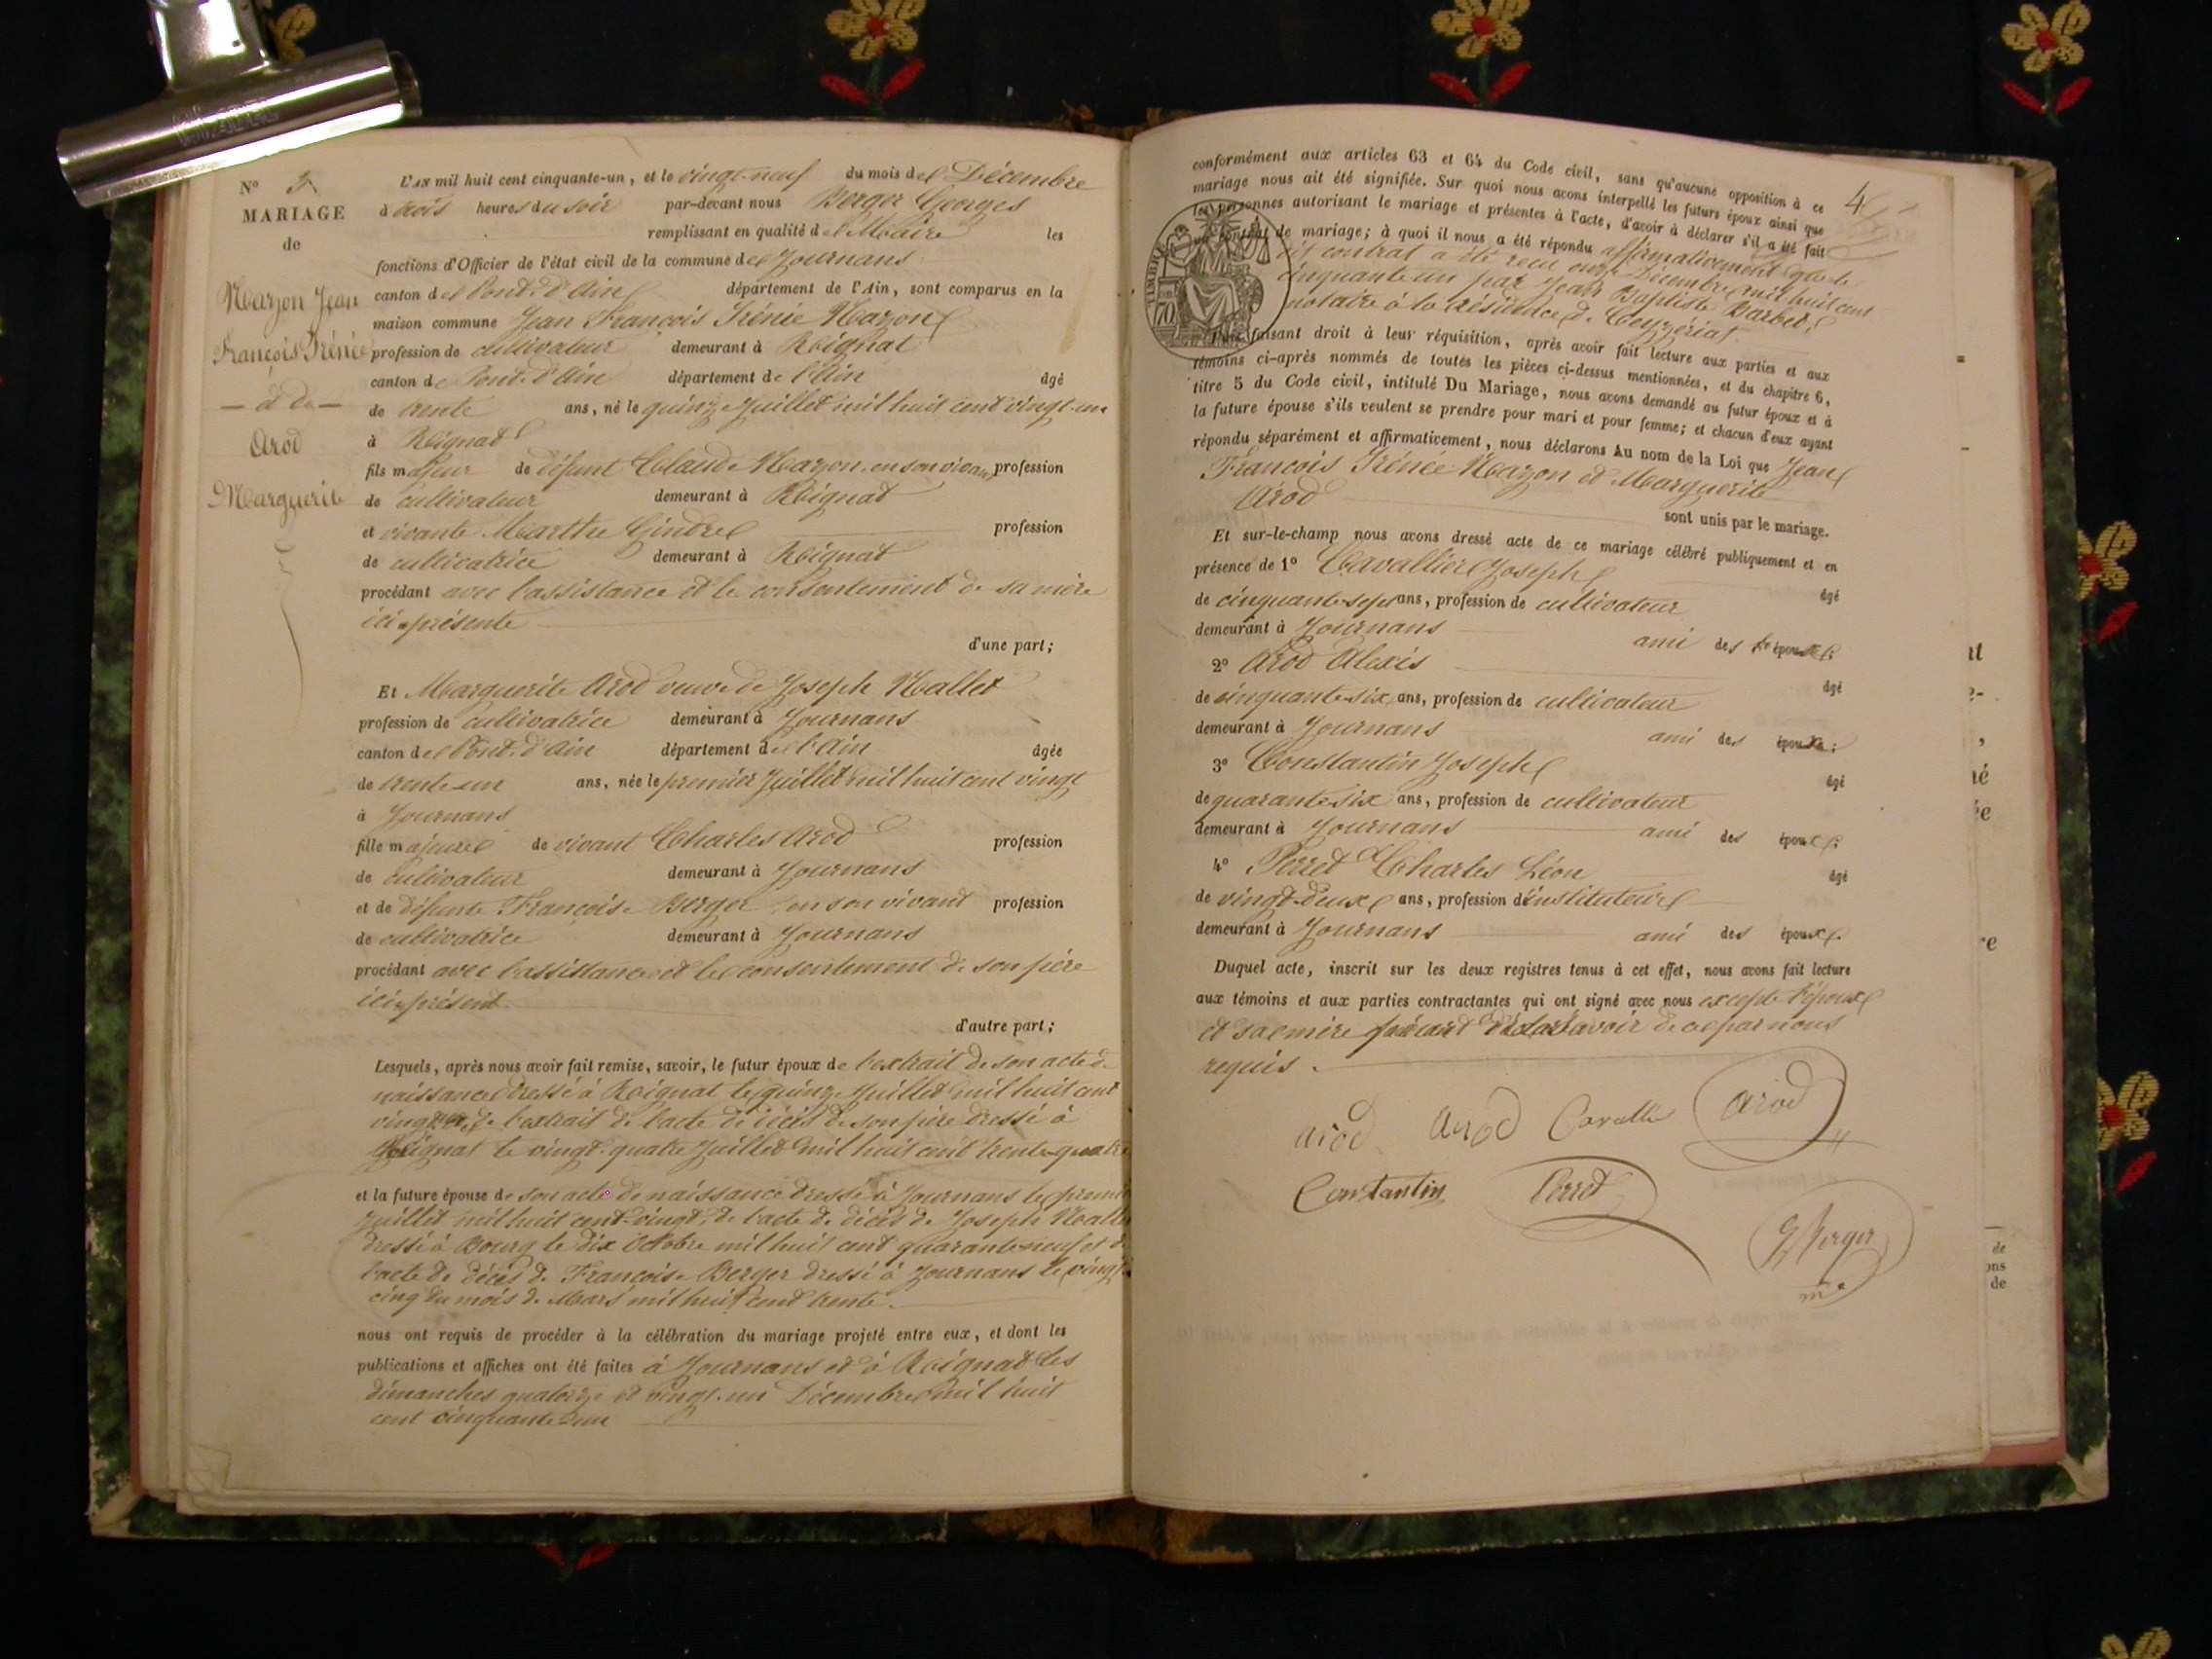 N° 5
MARIAGE
de
Mazon Jean
François Irénée
— et de —
Arod
Marguerite
L'AN mil huit cent cinquante-un, et le vingt-neuf du mois de Décembre
à trois heures du soir par-devant nous Berger Georges
remplissant en qualité de Maire les
fonctions d'Officier de l'état civil de la commune de Journans
canton de Pont-d'Ain département de l'Ain, sont comparus en la
maison commune Jean François Irénée Mazon
profession de cultivateur demeurant à Reignat
canton de Pont-d'Ain département de l'Ain âgé
de trente ans, né le quinze Juillet mil huit cent vingt-un
à Reignat
fils majeur de défunt Claude Mazon en son vivant profession
de cultivateur demeurant à Reignat
et vivante Marthe Gindre profession
de cultivatrice demeurant à Reignat
procédant avec l'assistance et le consentement de sa mère
ici présente
d'une part;
Et Marguerite Arod veuve de Joseph Mallet
profession de cultivatrice demeurant à Journans
canton de Pont-d'Ain département de l'Ain âgée
de trente-un ans, née le premier Juillet mil huit cent vingt
à Journans
fille majeure de vivant Charles Arod profession
de cultivateur demeurant à Journans
et de défunte Françoise Berger en son vivant profession
de cultivatrice demeurant à Journans
procédant avec l'assistance et le consentement de son père
ici présent
d'autre part;
Lesquels, après nous avoir fait remise, savoir, le futur époux de l'extrait de son acte de
naissance dressé à Reignat le quinze Juillet mil huit cent
vingt-un, de l'extrait de l'acte de décès de son père dressé à
Reignat le vingt-quatre Juillet mil huit cent trente-quatre
et la future épouse de son acte de naissance dressé à Journans le premier
Juillet mil huit cent-vingt, de l'acte de décès de Joseph Mallet
dressé à Bourg le dix Octobre mil huit cent quarante-neuf et de
l'acte de décès de Françoise Berger dressé à Journans le vingt
cinq du mois de Mars mil huit cent trente.
nous ont requis de procéder à la célébration du mariage projeté entre eux, et dont les
publications et affiches ont été faites à Journans et à Reignat les
dimanches quatorze et vingt-un Décembre mil huit
cent cinquante-un
4
conformément aux articles 63 et 64 du Code civil, sans qu'aucune opposition à ce
mariage nous ait été signifiée. Sur quoi nous avons interpellé les futurs époux ainsi que
les personnes autorisant le mariage et présentes à l'acte, d'avoir à déclarer s'il a été fait
un contrat de mariage; à quoi il nous a été répondu affirmativement que le
dit contrat a été reçu onze Décembre mil huit cent
cinquante-un par Jean Baptiste Barbet
notaire à la résidence de Ceyzériat.
TIMBRE
70
faisant droit à leur réquisition, après avoir fait lecture aux parties et aux
témoins ci-après nommés de toutes les pièces ci-dessus mentionnées, et du chapitre 6,
titre 5 du Code civil, intitulé Du Mariage, nous avons demandé au futur époux et à
la future épouse s'ils veulent se prendre pour mari et pour femme; et chacun d'eux ayant
répondu séparément et affirmativement, nous déclarons Au nom de la Loi que Jean
François Irénée Mazon et Marguerite
Arod
sont unis par le mariage.
Et sur-le-champ nous avons dressé acte de ce mariage célébré publiquement et en
présence de 1° Cavallier Joseph
âgé
de cinquante-sept ans, profession de cultivateur
demeurant à Journans ami des époux;
2° Arod Alexis
âgé
de cinquante-six ans, profession de cultivateur
demeurant à Journans ami des époux;
3° Constantin Joseph
âgé
de quarante-six ans, profession de cultivateur
demeurant à Journans ami des époux;
4° Perret Charles Léon
âgé
de vingt-deux ans, profession d'instituteur
demeurant à Journans ami des époux.
Duquel acte, inscrit sur les deux registres tenus à cet effet, nous avons fait lecture
aux témoins et aux parties contractantes qui ont signé avec nous excepté l'époux
et sa mère de ce par nous
requis.
arod arod Cavallie arod
Constantin Perret
G Berger
me